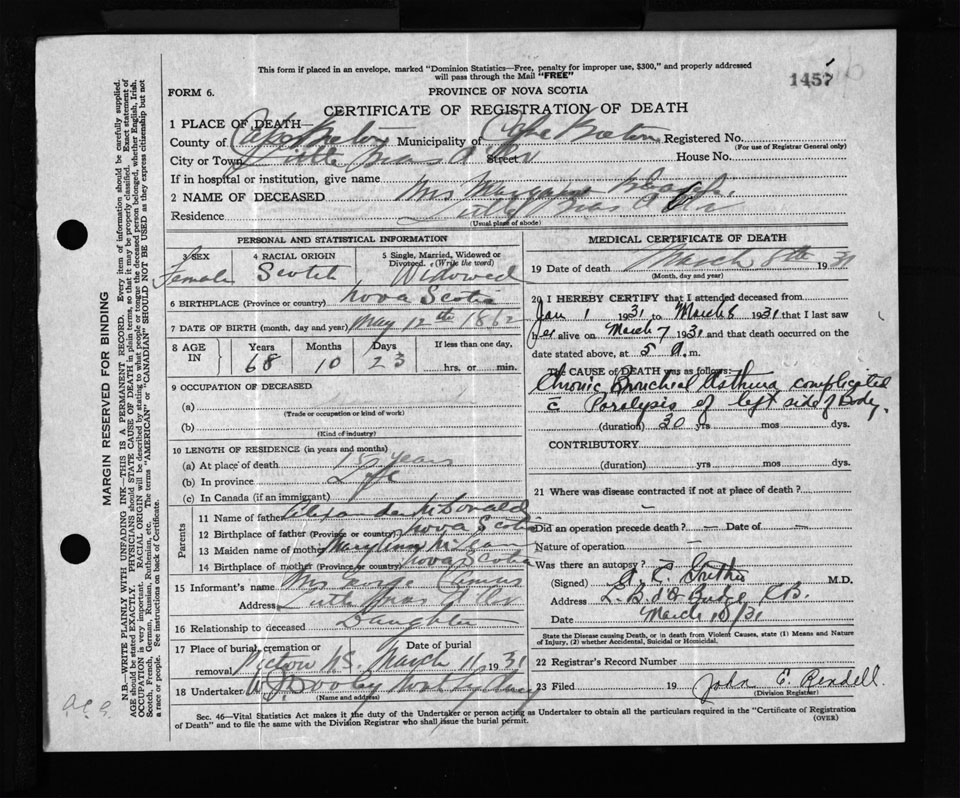 This form if placed in an envelope, marked "Dominion Statistics—Free, penalty for improper use, $300," and properly addressed
will pass through the Mail "FREE"
1457
FORM 6.
PROVINCE OF NOVA SCOTIA
CERTIFICATE OF REGISTRATION OF DEATH
1 PLACE OF DEATH
County of Cape Breton Municipality of Cape Breton Registered No.
(For use of Registrar General only)
City or Town Little Bras d'Or Street House No.
If in hospital or institution, give name
2 NAME OF DECEASED Mrs Margaret
Residence Little Bras d'Or
(Usual place of abode)
PERSONAL AND STATISTICAL INFORMATION
3 SEX Female
4 RACIAL ORIGIN Scotch
5 Single, Married, Widowed or Divorced. (Write the word) Widowed
6 BIRTHPLACE (Province or country) Nova Scotia
7 DATE OF BIRTH (month, day and year) May 12th 1862
8 AGE IN Years Months Days If less than one day,
68 10 23 hrs. or min.
9 OCCUPATION OF DECEASED
(a)
(Trade or occupation or kind of work)
(b)
(Kind of industry)
10 LENGTH OF RESIDENCE (in years and months)
(a) At place of death years
(b) In province Life
(c) In Canada (if an immigrant)
Parents
11 Name of father Alexander McDonald
12 Birthplace of father (Province or country) Nova Scotia
13 Maiden name of mother Mary Ann McLean
14 Birthplace of mother (Province or country) Nova Scotia
15 Informant's name Mrs George
Address Little Bras d'Or
16 Relationship to deceased Daughter
17 Place of burial, cremation or removal Pictou N.S. Date of burial March 11 1931
18 Undertaker North Sydney
(Name and address)
MEDICAL CERTIFICATE OF DEATH
19 Date of death March 8th 1931
(Month, day and year)
20 I HEREBY CERTIFY that I attended deceased from
Jan 1 1931 to March 8 1931 that I last saw
her alive on March 7 1931 and that death occurred on the
date stated above, at 5 A.m.
The CAUSE of DEATH was as follows:
Chronic Bronchial Asthma complicated
c Paralysis of left side of Body.
(duration) 30 yrs mos dys.
CONTRIBUTORY
(duration) yrs mos dys.
21 Where was disease contracted if not at place of death?
—
Did an operation precede death? — Date of —
Nature of operation —
Was there an autopsy? —
(Signed) M.D.
Address L. B. d'Or Bridge C.B.
Date March 10/31
State the Disease causing Death, or in death from Violent Causes, state (1) Means and Nature
of Injury, (2) whether Accidental, Suicidal or Homicidal.
22 Registrar's Record Number
23 Filed 19 John E. Rendell.
(Division Registrar)
Sec. 46—Vital Statistics Act makes it the duty of the Undertaker or person acting as Undertaker to obtain all the particulars required in the "Certificate of Registration
of Death" and to file the same with the Division Registrar who shall issue the burial permit.
(OVER)
MARGIN RESERVED FOR BINDING
N.B.—WRITE PLAINLY WITH UNFADING INK—THIS IS A PERMANENT RECORD. Every item of information should be carefully supplied.
AGE should be stated EXACTLY. PHYSICIANS should STATE CAUSE OF DEATH in plain terms, so that it may be properly classified. Exact statement of
OCCUPATION is very important. RACIAL ORIGIN will be described by stating to what people or tongue the deceased person belonged, whether English, Irish,
Scotch, French, German, Russian, Ruthenian, etc. The terms "AMERICAN" or "CANADIAN" SHOULD NOT BE USED as they express citizenship but not
a race or people. See instructions on back of Certificate.